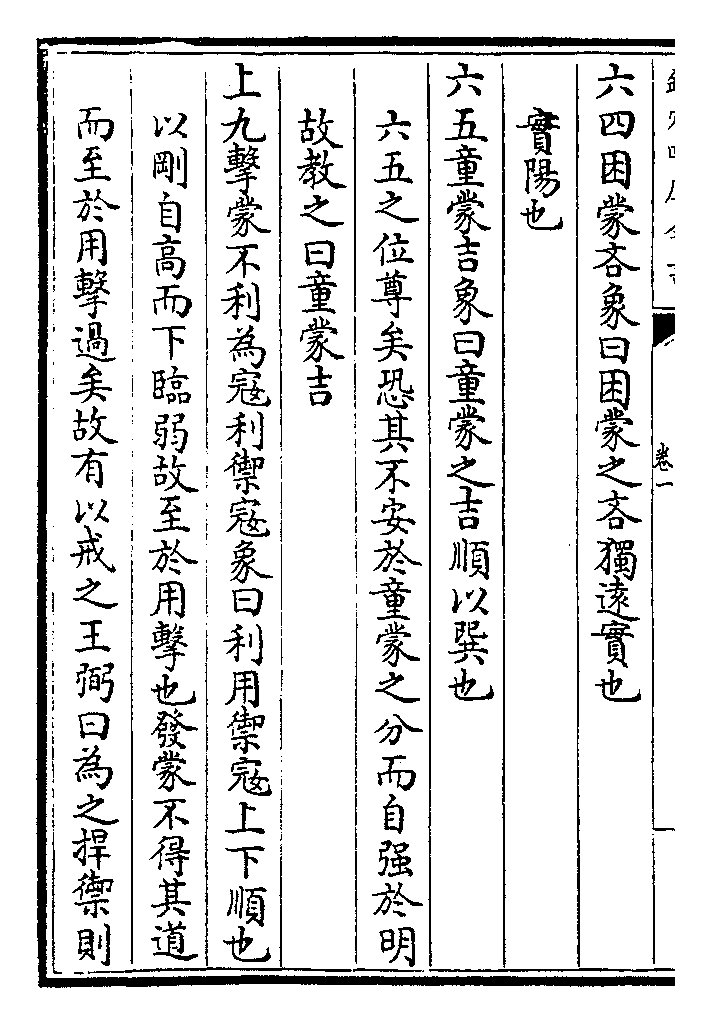 卷一
六四困蒙吝象曰困蒙之吝獨遠實也
實陽也
六五童蒙吉象曰童蒙之吉順以巽也
六五之位尊矣恐其不安於童蒙之分而自强於明
故教之曰童蒙吉
上九擊蒙不利為寇利禦寇象曰利用禦寇上下順也
以剛自高而下臨弱故至於用擊也發蒙不得其道
而至於用擊過矣故有以戒之王弼曰為之捍禦則